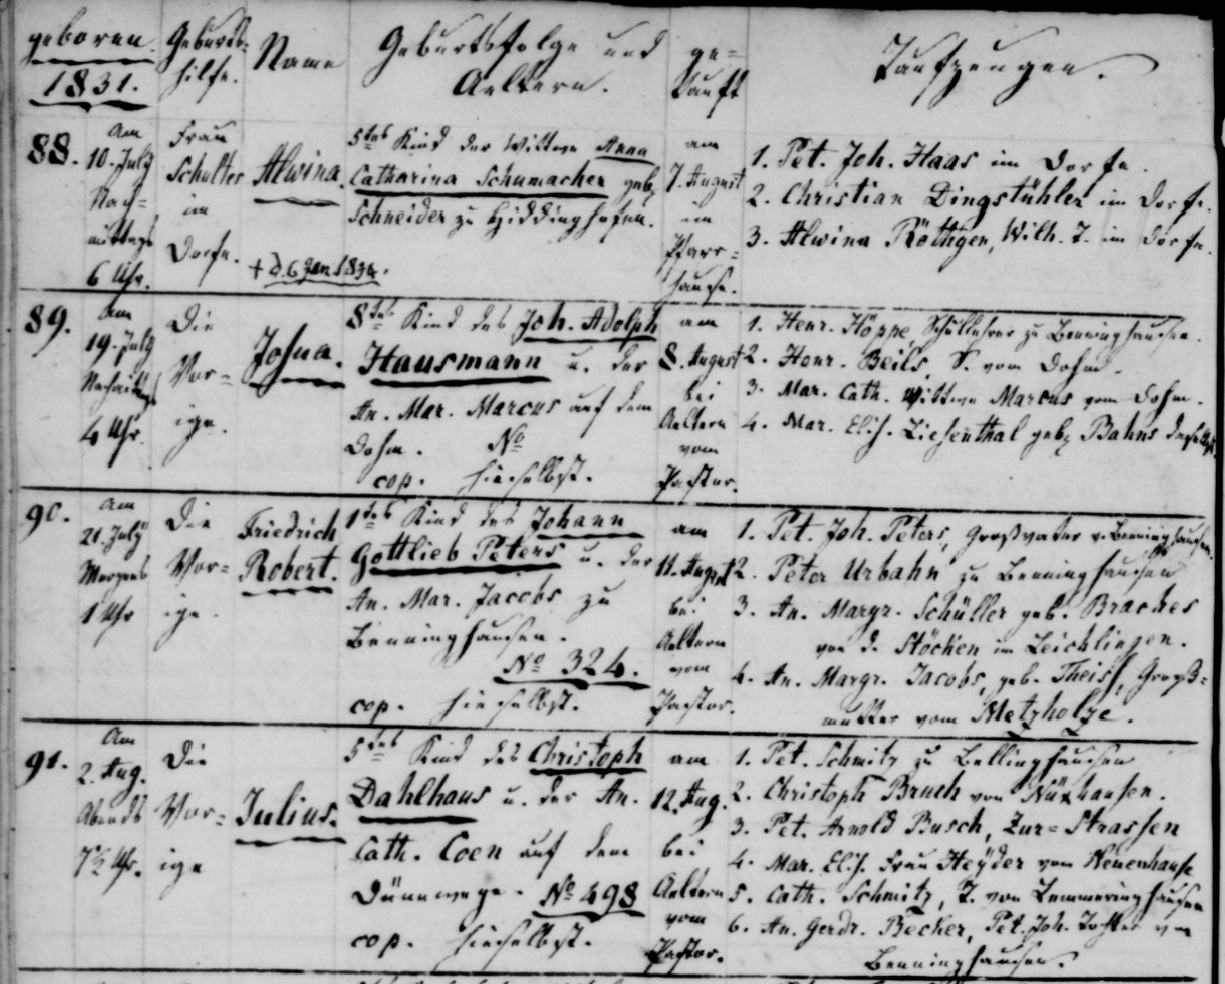 geboren. Geburts- Name Geburtsfolge und ge- Taufzeugen.
1831. hilfe. Aeltern. tauft
88. Am Frau Alwina. 5tes Kind der Wittwe Anna am 1. Pet. Joh. Haas im Dorfe.
10. July Schulter Catharina Schumacher geb. 7. August 2. Christian Dingstühler im Dorfe.
Nach- im Schneider zu Hiddinghofen. im 3. Alwina Röttgen, Wilh. T. im Dorfe.
mittags Dorfe. Pfarr-
6 Uhr. † d. 6 Jan 1834. hause.
89. Am Die Josua. 8tes Kind des Joh. Adolph am 1. Henr. Höppe, Schullehrer zu Benninghausen.
19. July Vor- Hausmann u. der 8. August 2. Henr. Beils, S. vom Dohm.
Nachmittags ige. An. Mar. Marcus auf dem bei 3. Mar. Cath. Wittwe Marcus vom Dohm.
4 Uhr. Dohm. No Aeltern 4. Mar. Elis. Liesenthal geb. Bahns daselbst.
cop. hieselbst. vom
Pastor.
90. Am Die Friedrich 1tes Kind des Johann am 1. Pet. Joh. Peters, Großvater v. Benninghausen.
21. July Vor- Robert. Gottlieb Peters u. der 11. August 2. Peter Urbahn zu Benninghausen
Morgens ige. An. Mar. Jacobs zu bei 3. An. Margr. Schüller geb. Braches
1 Uhr Benninghausen. Aeltern von d. Stöcken in Leichlingen.
No 324. vom 4. An. Margr. Jacobs, geb. Theiss, Groß-
cop. hieselbst. Pastor. mutter vom Metzholze.
91. Am Die Julius. 5tes Kind des Christoph am 1. Pet. Schmitz zu Bellinghausen
2. Aug. Vor- Dahlhaus u. der An. 12. Aug. 2. Christoph Bruch von Nüxhausen.
Abends ige Cath. Coen auf dem bei 3. Pet. Arnold Busch, Zur-Strassen
7½ Uhr. Dünnwege. No 498 Aeltern 4. Mar. Elis. Frau Heyder vom Neuenhause
cop. hieselbst. vom 5. Cath. Schmitz, T. von Lemmeringhausen
Pastor. 6. An. Gerdr. Becker, Pet. Joh. Tochter von
Benninghausen.